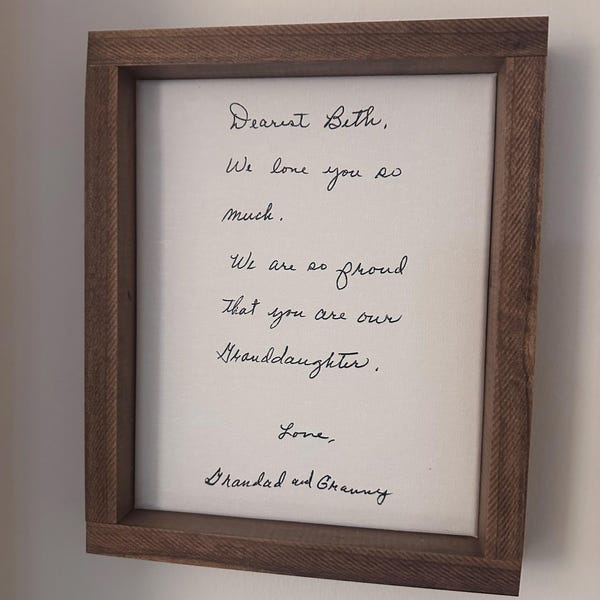 Dearest Beth,
We love you so
much.
We are so proud
that you are our
Granddaughter.
Love,
Grandad and Granny